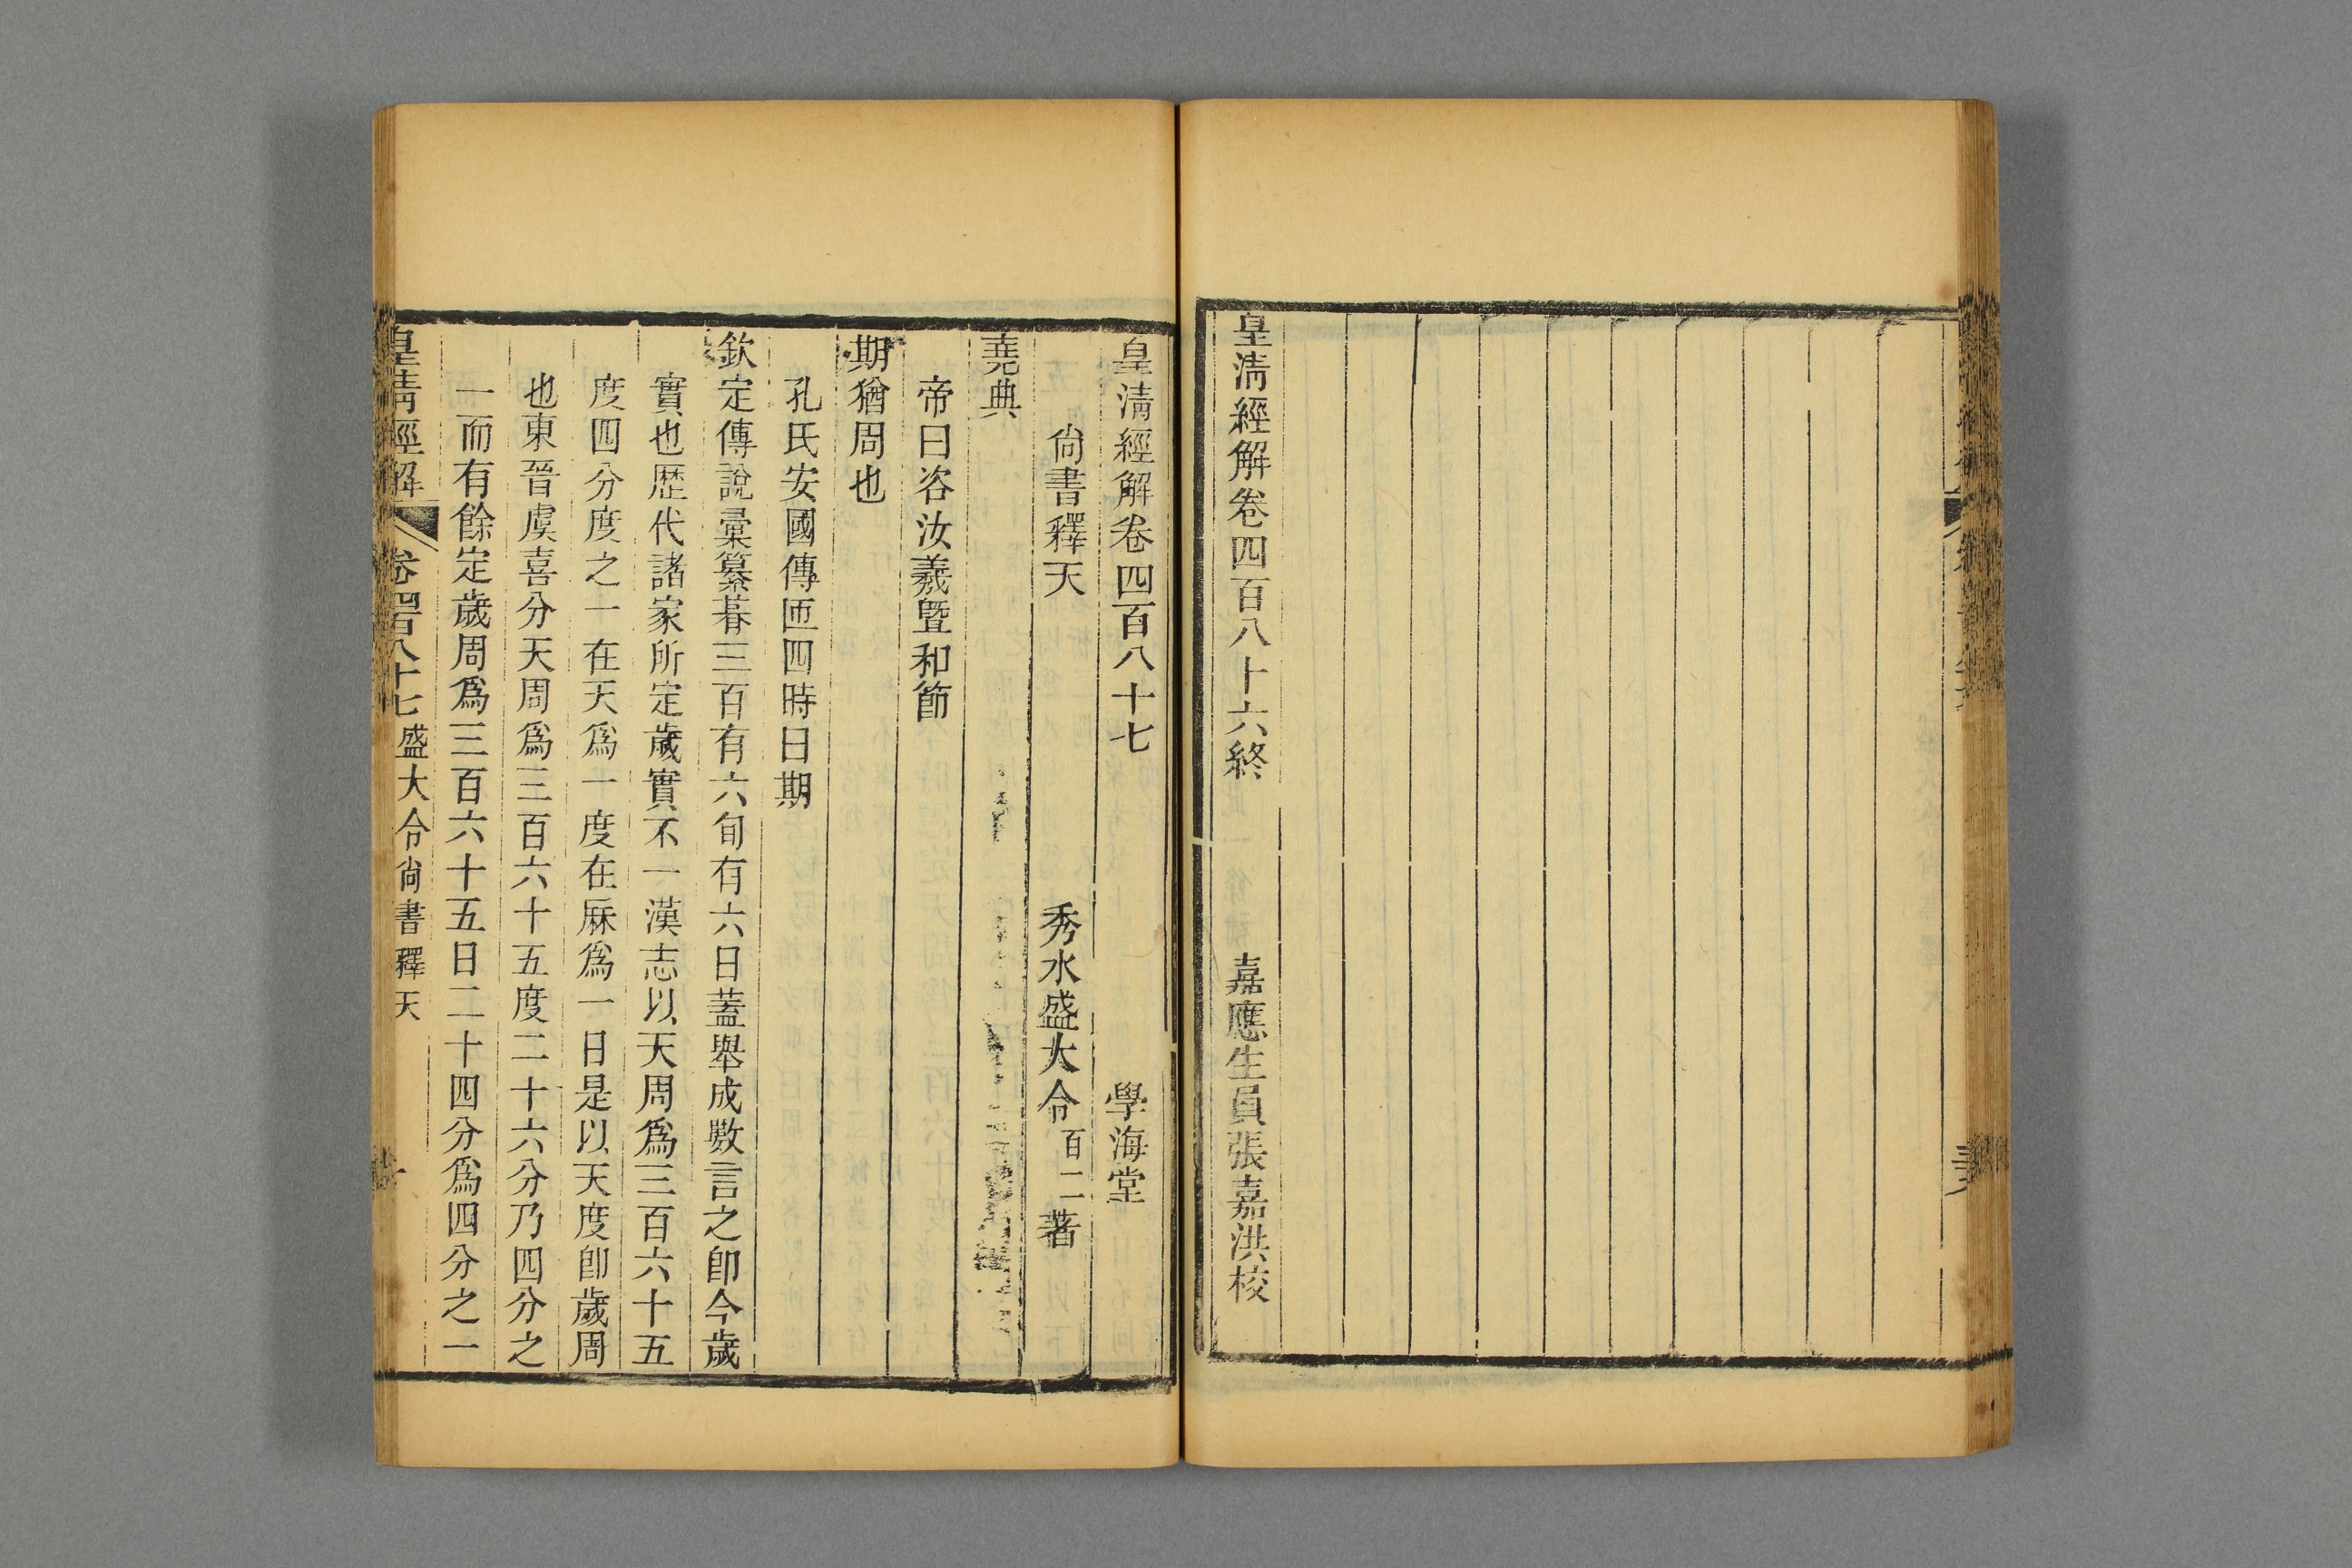 皇淸經解卷四百八十六終 嘉應生員張嘉洪校
皇淸經解卷四百八十七 學海堂
尙書釋天 秀水盛大令百二著
堯典
帝曰咨汝羲暨和節
期猶周也
孔氏安國傳匝四時曰期
欽定傳說彙纂朞三百有六旬有六日蓋舉成數言之卽今歲
實也歷代諸家所定歲實不一漢志以天周爲三百六十五
度四分度之一在天爲一度在厤爲一日是以天度卽歲周
也東晉虞喜分天周爲三百六十五度二十六分乃四分之
一而有餘定歲周爲三百六十五日二十四分爲四分之一
皇淸經解 卷四百八十七盛大令尙書釋天 一